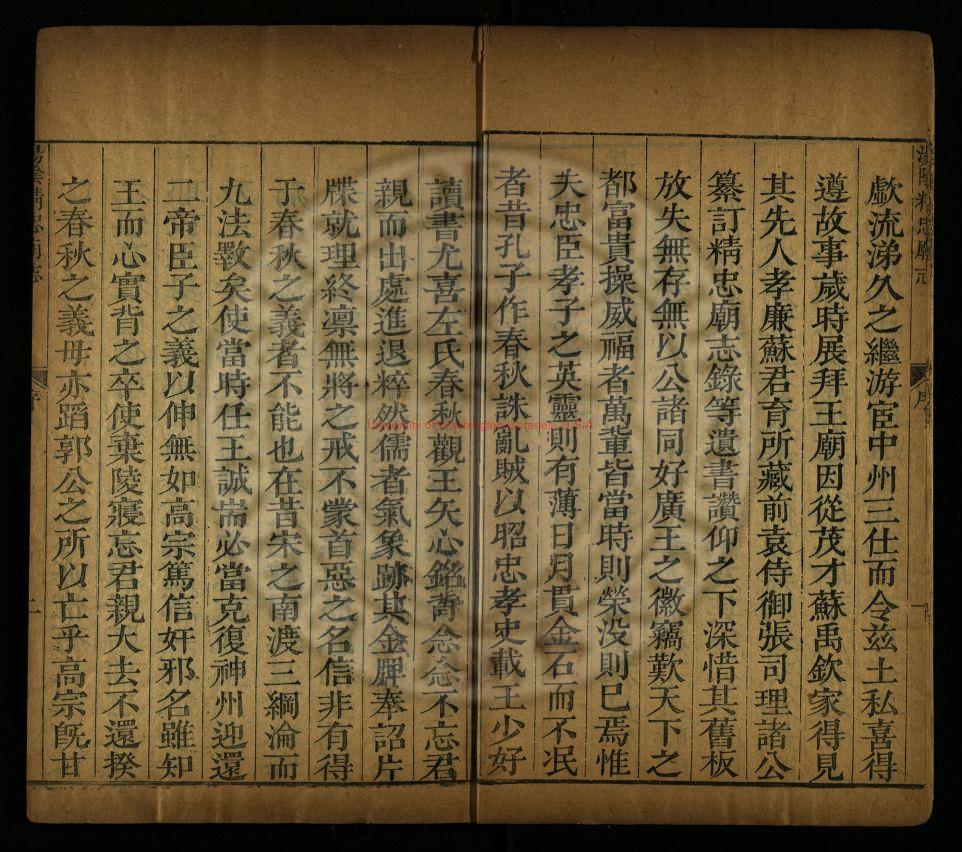 歔流涕久之繼游宦中州三仕而令茲土私喜得
遵故事歲時展拜王廟因從茂才蘇禹欽家得見
其先人孝廉蘇君育所藏前袁侍御張司理諸公
纂訂精忠廟志錄等遺書讚仰之下深惜其舊板
放失無存無以公諸同好廣王之徽竊歎天下之
都富貴操威福者萬輩皆當時則榮沒則已焉惟
夫忠臣孝子之英靈則有薄日月貫金石而不泯
者昔孔子作春秋誅亂賊以昭忠孝史載王少好
讀書尤喜左氏春秋觀王矢心銘膂念念不忘君
親而出處進退粹然儒者氣象跡其金牌奉詔片
牒就理終凜無將之戒不蒙首惡之名信非有得
于春秋之義者不能也在昔宋之南渡三綱淪而
九法斁矣使當時任王誠耑必當克復神州迎還
二帝臣子之義以伸無如高宗篤信奸邪名雖知
王而心實背之卒使棄陵寢忘君親大去不還揆
之春秋之義毋亦蹈郭公之所以亡乎高宗既甘
湯陰精忠廟志
序
一
湯陰精忠廟志
序
二
University of Washington Libraries, U.S.A.